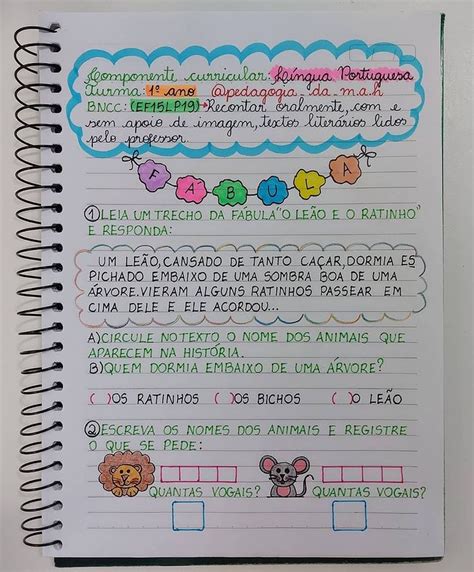 Componente curricular: Língua Portuguesa
Turma: 1º ano @pedagogia_da_m.a.h
BNCC: (EF15LP19)→Recontar oralmente, com e
sem apoio de imagem, textos literários lidos
pelo professor.
FABULA
1 LEIA UM TRECHO DA FABULA "O LEÃO E O RATINHO"
E RESPONDA:
UM LEÃO, CANSADO DE TANTO CAÇAR, DORMIA ES
PICHADO EMBAIXO DE UMA SOMBRA BOA DE UMA
ÁRVORE. VIERAM ALGUNS RATINHOS PASSEAR EM
CIMA DELE E ELE ACORDOU...
A) CIRCULE NO TEXTO O NOME DOS ANIMAIS QUE
APARECEM NA HISTÓRIA.
B) QUEM DORMIA EMBAIXO DE UMA ÁRVORE?
( ) OS RATINHOS ( ) OS BICHOS ( ) O LEÃO
2 ESCREVA OS NOMES DOS ANIMAIS E REGISTRE
O QUE SE PEDE:
QUANTAS VOGAIS? QUANTAS VOGAIS?